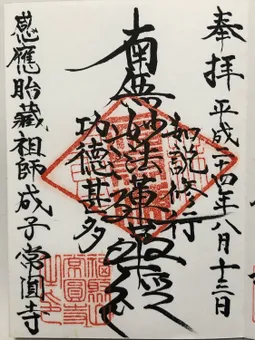 奉拝 平成二十四年八月十三日
如説修行
南無妙法蓮華経
功徳甚多
感應胎藏祖師 成子 常圓寺